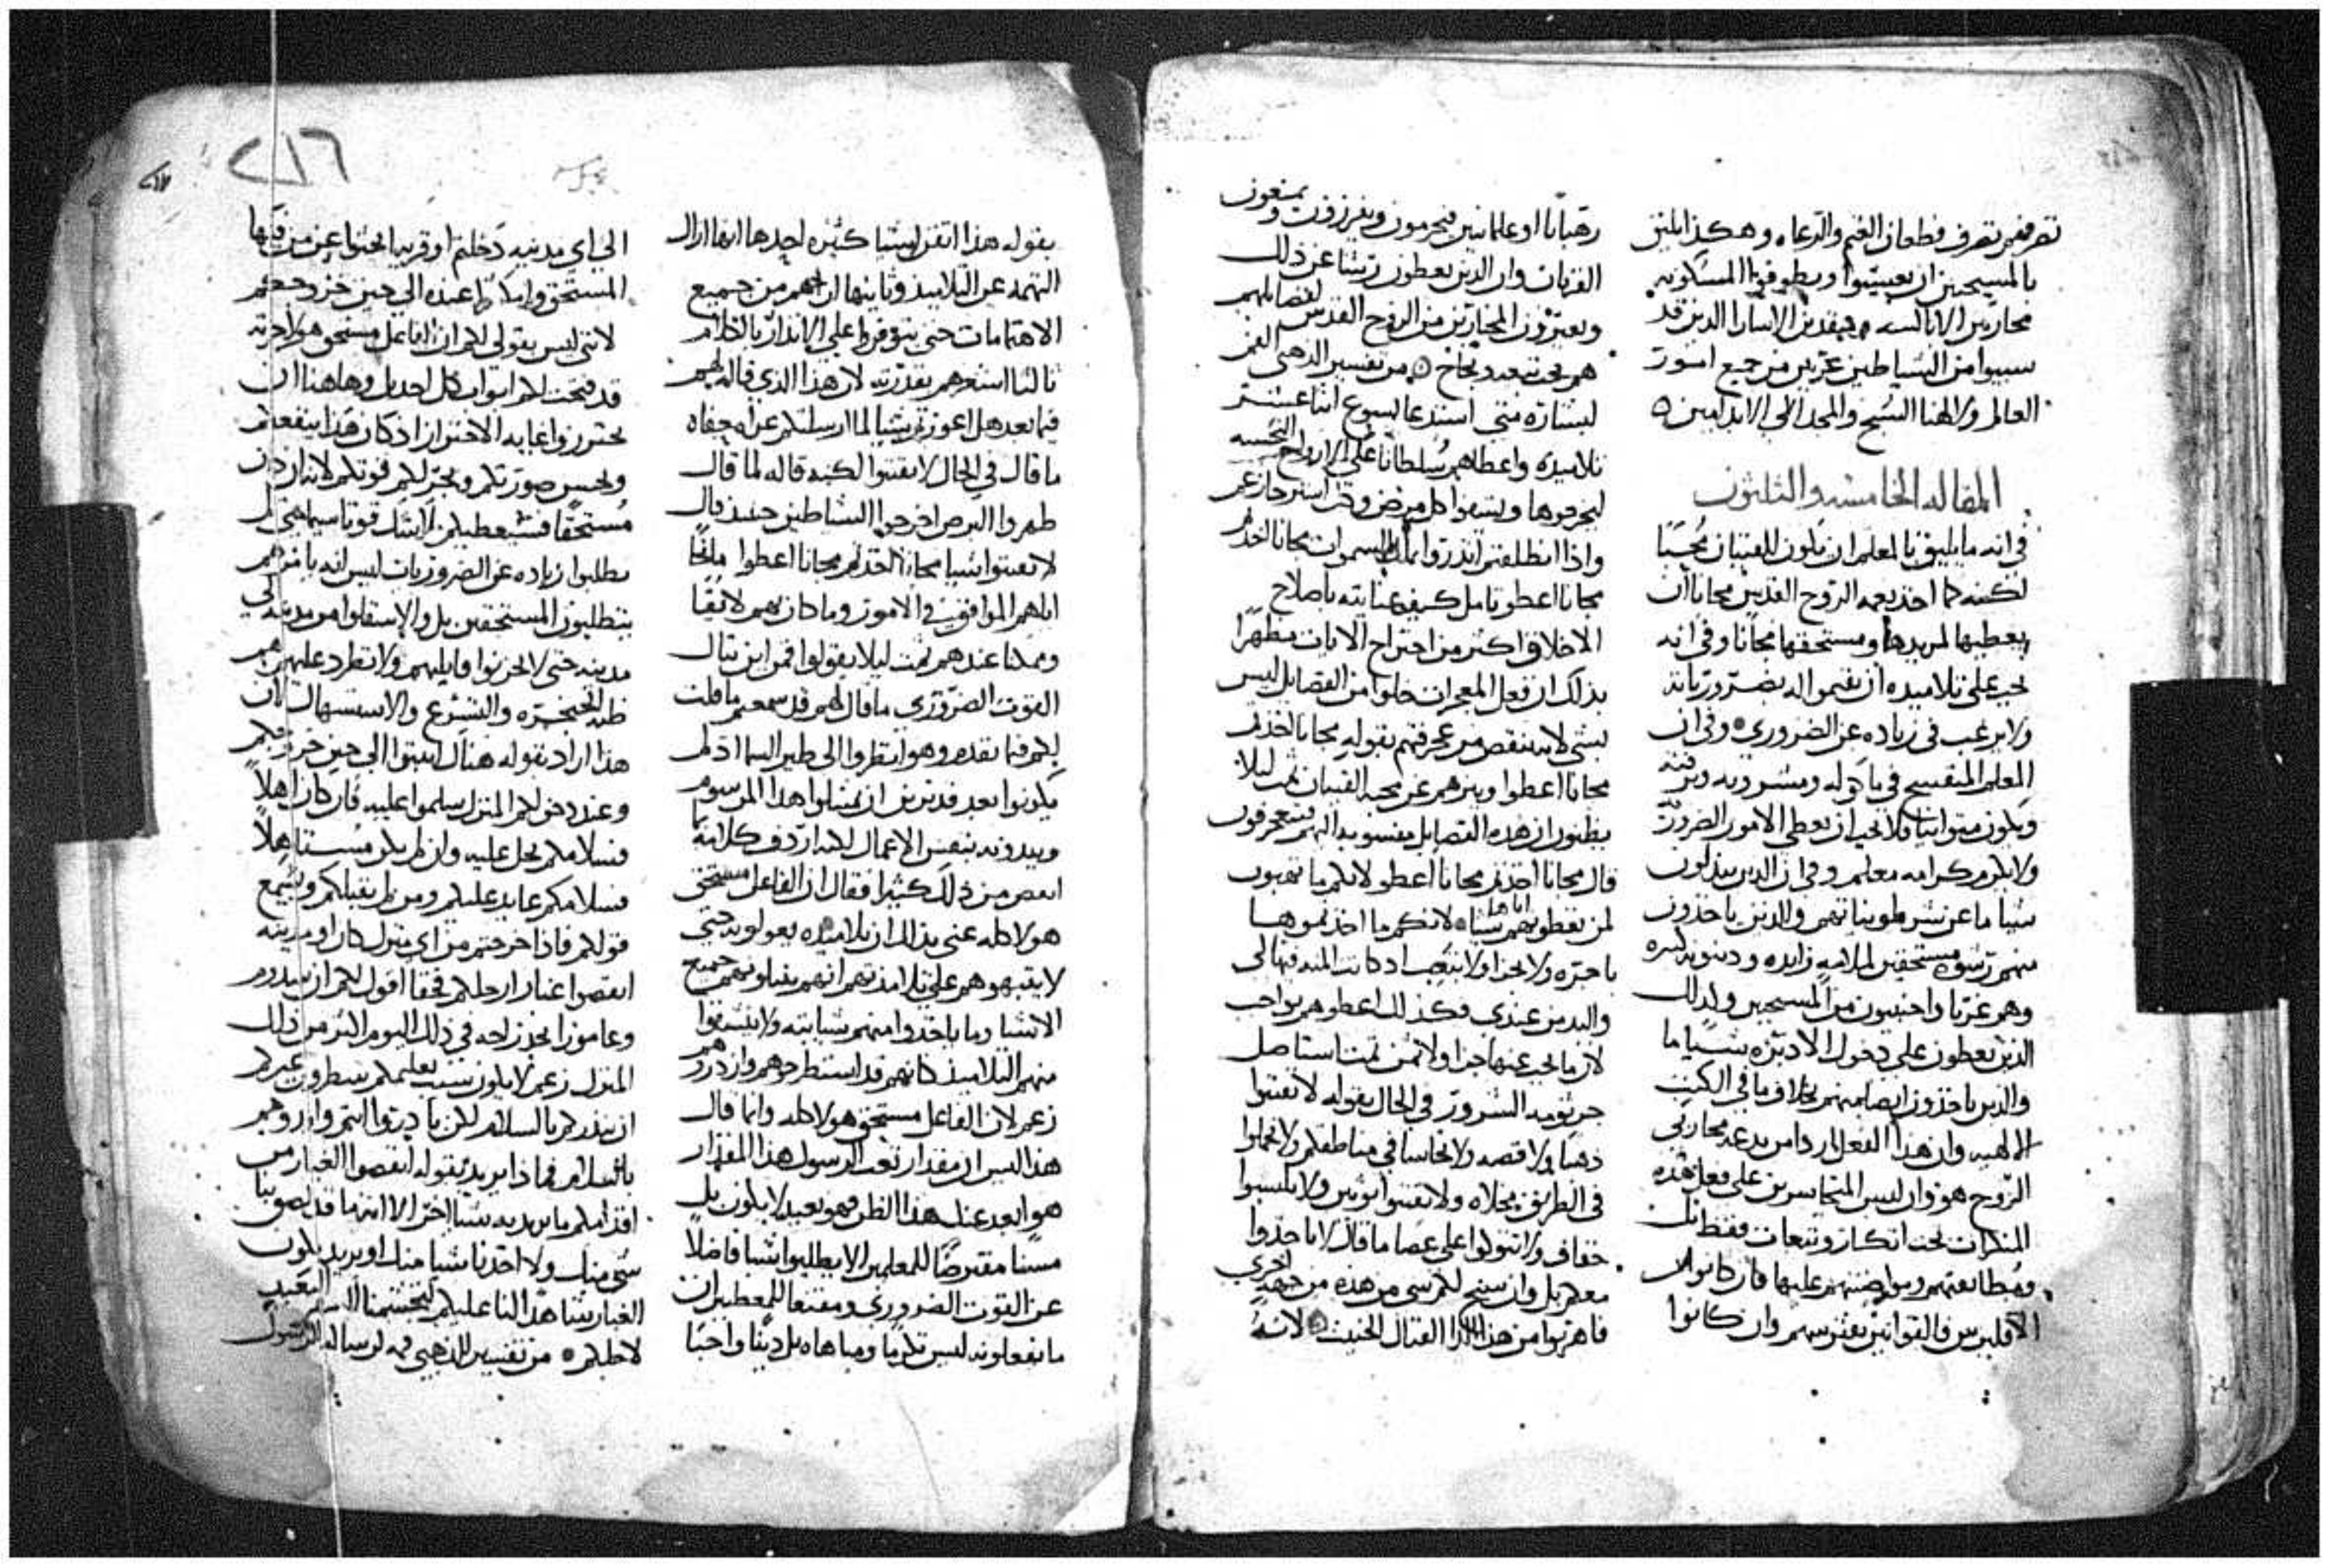 تعرفهم تعرف قطعان الغنم والرعاه وهكذا يليق
بالمسيحيين ان يعيشوا ويطوفوا المسكونه
محاربين الابالسه ومنقذين الاسارا الذين قد
سبيوا من الشياطين عربين من جميع امور
العالم ولالهنا السبح والمجد الى الابد امين
المقاله الخامسه والثلثون
في انه ما يليق بالمعلم ان يكون للقنيان محبًا
لكنه كما اخذ نعمه الروح القدس مجانا ان
يعطيها لمريدها ومستحقها مجانا وفي انه
يجب على تلاميذه ان يقيموا له بضروراته
ولا يرغب في زياده عن الضروري وفي ان
المعلم المتفسح في ماكوله ومشروبه
ويكون متوانيًا فلا يجب ان يعطى الامور الضروريه
ولا يكرم كرامه معلم وفي ان الذين يبذلون
شيا ما عن شرطونياتهم والذين ياخذون
منهم رشوه مستحقين لملامه زايده ودينونه كثيره
وهم غربا واجنبيون من المسيحيين وكذلك
الذين يعطون على دخول الاديره شيًا ما
والذين ياخذون ايضا منهم بخلاف ما في الكتب
الالهيه وان هذا الفعل اردا من بدعه محاربي
الروح هو وان ليس المتجاسرين على فعل هذه
المنكرات تحت انكار وتبعات فقط بل
ومطابقتهم وموافقتهم عليها فان كانوا من
الاقليرس فالقوانين تعترسهم وان كانوا
رهبانا او علمانيين فيحرمون ويفرزون ويمنعون
القربان وان الذين يعطون رشا عن ذلك
ويعتزون المختارين من الروح القدس لفضايلهم
هم تحت تهديد نجاح من تفسير الذهبي الفم
لبشاره متى استدعا ليسوع اثنا عشر
تلاميذه واعطاهم سلطانًا على الارواح النجسه
ليخرجوها ويشفوا كل مرض وكل استرخا زعم
واذا انطلقتم انذروا بملك السموات مجانا اخذتم
مجانا اعطوا تامل كيف عنايته باصلاح
الاخلاق اكثر من اجتراح الايات مظهرًا
بذلك ان فعل المعجزات خلوا من الفضايل ليس
بشي لانه ينقص من عجرفتهم بقوله مجانا اخذتم
مجانا اعطوا وينزههم عن محبه القنيان ثم ليلا
يظنون ان هذه الفضايل منسوبه اليهم فيتعجرفون
قال مجانا اخذتم مجانا اعطوا لانكم ما تهبون
لمن تعطونهم اياها شيا لانكم ما اخذتموها
باجره ولا بجزا ولا بتعب اذ كانت المنه فيها لي
والبدين عندي فكذلك اعطوهم بواجب
لان ما يجب عنها جزا ولا ثمن ثمت استاصل
جرثومه الشرور في الحال بقوله لا تقتنوا
ذهبا ولا فضه ولا نحاسا في مناطقكم ولا تحملوا
في الطريق مخلاه ولا تقتنوا ثوبين ولا تلبسوا
خفاف ولا تتولوا على عصا ما قال لا تاخذوا
معكم بل وان سنح لكم شي من هذه من جهه اخرى
فاهربوا من هذا الدا القتال الخبيث لانه
بقوله هذا اتقن اشيا كثيره احدها انه ازال
التهمه عن التلاميذ وثانيها انه اراحهم من جميع
الاهتمامات حتى يتوفروا على الانذار بالكلام
ثالثا اشعرهم بقدرته لان هذا الذي قاله لهم
فيما بعد هل اعوزتم شيا لما ارسلتكم عراه حفاه
ما قال في الحال لا تقتنوا لكنه قاله لما قال
طهروا البرص اخرجوا الشياطين حينيذ قال
لا تقتنوا شيا مجانا اخذتم مجانا اعطوا مانحًا
اياهم الموافق في الامور وما كان بهم لايقًا
وممكنا عندهم ثمت ليلا يقولوا فمن اين ننال
القوت الضروري ما قال لهم قد سمعتم ما قلت
لكم فيما تقدم وهو انظروا الى طير السما اذ لم
يكونوا بعد قد ترن ان يمتثلوا هذا المرسوم
ويبدونه بنفس الاعمال لكنه اردف كلامه بما
انقص من ذلك كثيرا فقال ان الفاعل مستحق
هو لاكله عنى بذلك ان تلاميذه يعولونه حتى
لا يتبهوا هم على تلامذتهم انهم يناولونهم جميع
الاشيا وما ياخذوا منهم شيا بته ولا يشتقوا
منهم التلاميذ كانهم قد استطرحوهم وازدروهم
زعم لان الفاعل مستحق هو لاكله وانما قال
هذا ليس ان مقدار تعب الرسول هذا المقدار
هو ابعد عنك هذا الظن فهو بعيد لا يكون بل
مسننا مفترضًا للمعلمين الا يطلبوا شيا فاضلاً
عن القوت الضروري ومقنعا للمعطيين ان
ما يفعلونه ليس تكرما ومباهاه بل دينًا واجبًا
٢١٦
الى اي مدينه دخلتم او قريه ابحثوا عن من فيها
المستحق وامكثوا عنده الى حين خروجكم
لانني ليس بقولي لكم ان الفاعل مستحق هو لاجرته
قد فتحت لكم ابواب كل احد بل وهاهنا ان
تحترزوا غايه الاحتراز اذ كان هذا ينفعكم
ويحسن صورتكم ويخير لكم قوتكم لانه ان كان
مستحقًا فسيعطيكم لا شك قوتا سيما متى لم
يطلبوا زياده عن الضروريات ليس انه يامرهم
يتطلبون المستحقين بل والا ينتقلوا من مدينه الى
مدينه حتى لا يحزنوا قابليهم ولا تطرد عليهم هم
ظنه الحنجره والتسرع والاستسهال لان
هذا اراد بقوله هناك اثبتوا الى حين خروجكم
وعند دخولكم المنزل سلموا عليه فان كان اهلاً
فسلامكم يحل عليه وان لم يكن مستاهلاً
فسلامكم عايد عليكم ومن لم يقبلكم ويسمع
قولكم فاذا خرجتم من اي منزل كان او مدينه
انفضوا غبار ارجلكم فحقا اقول لكم ان سدوم
وعامورا تجد راحه في ذلك اليوم اكثر من ذلك
المنزل زعم لا يكون بسبب تعليمكم ينتظرون غيركم
ان ينذركم بالسلام لكن بادروا انتم واوردوهم
بالسلام فماذا يريد بقوله انفضوا الغبار من
اقدامكم ما يريد به شيا اخر الا انه ما قد لصق بنا
شي منك ولا اخذنا شيا منك او يريد يكون
الغبار شاهدا لنا عليكم لتجشمنا السفر البعيد
لاجلكم من تفسير الذهبي فمه لرساله الرسول